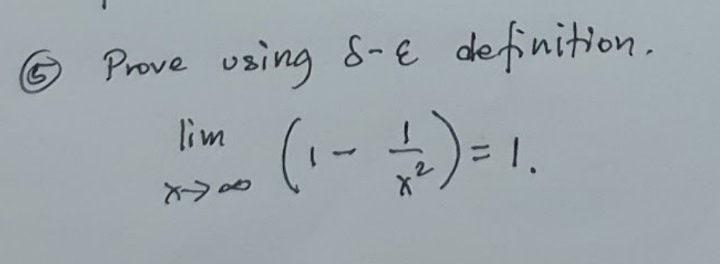 ⑤ Prove using δ-ε definition.
lim x→∞ (1 - 1/x²) = 1.